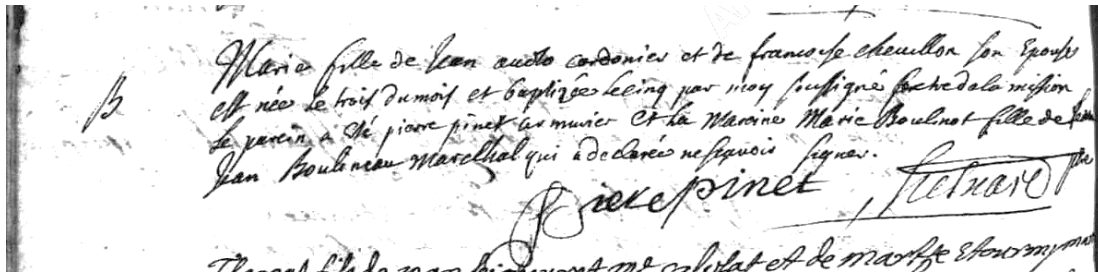 B
Marie fille de Jean audo cordonier et de francoise chevillon son Epouse
est née le trois du mois et baptizée le cinq par moy soussigné prestre de la mission
le parein a été pierre pinet armurier et la Mareine Marie Boulinot fille de Jean
Jean Boulineau Marechal qui a declarée ne sçavoir signer.
Piere pinet
ptre
fils de et de marthe